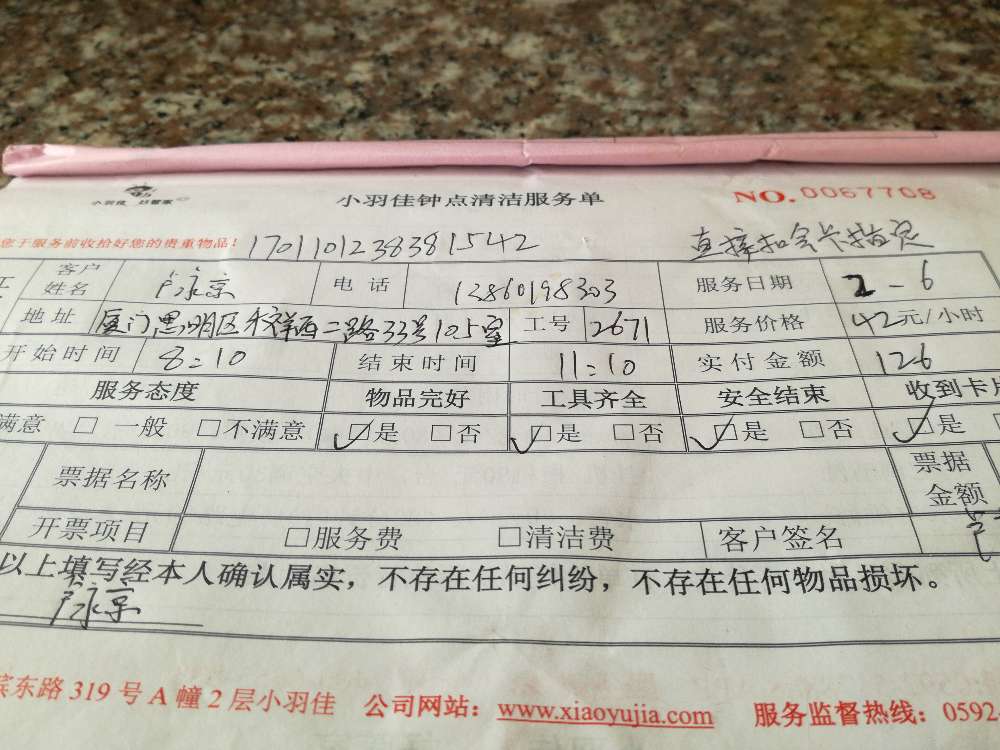 小羽佳 好管家
小羽佳钟点清洁服务单 NO.0067708
您于服务前收拾好您的贵重物品! 1701101238381542 直接扣会卡指定
客户姓名 卢永京 电话 13860198303 服务日期 2-6
地址 厦门思明区禾祥西二路33号105室 工号 2671 服务价格 42元/小时
开始时间 8:10 结束时间 11:10 实付金额 126
服务态度 物品完好 工具齐全 安全结束 收到卡片
满意 □一般 □不满意 ☑是 □否 ☑是 □否 ☑是 □否 ☑是
票据名称 票据金额
开票项目 □服务费 □清洁费 客户签名
以上填写经本人确认属实，不存在任何纠纷，不存在任何物品损坏。
卢永京
滨东路319号A幢2层小羽佳 公司网站：www.xiaoyujia.com 服务监督热线：0592-